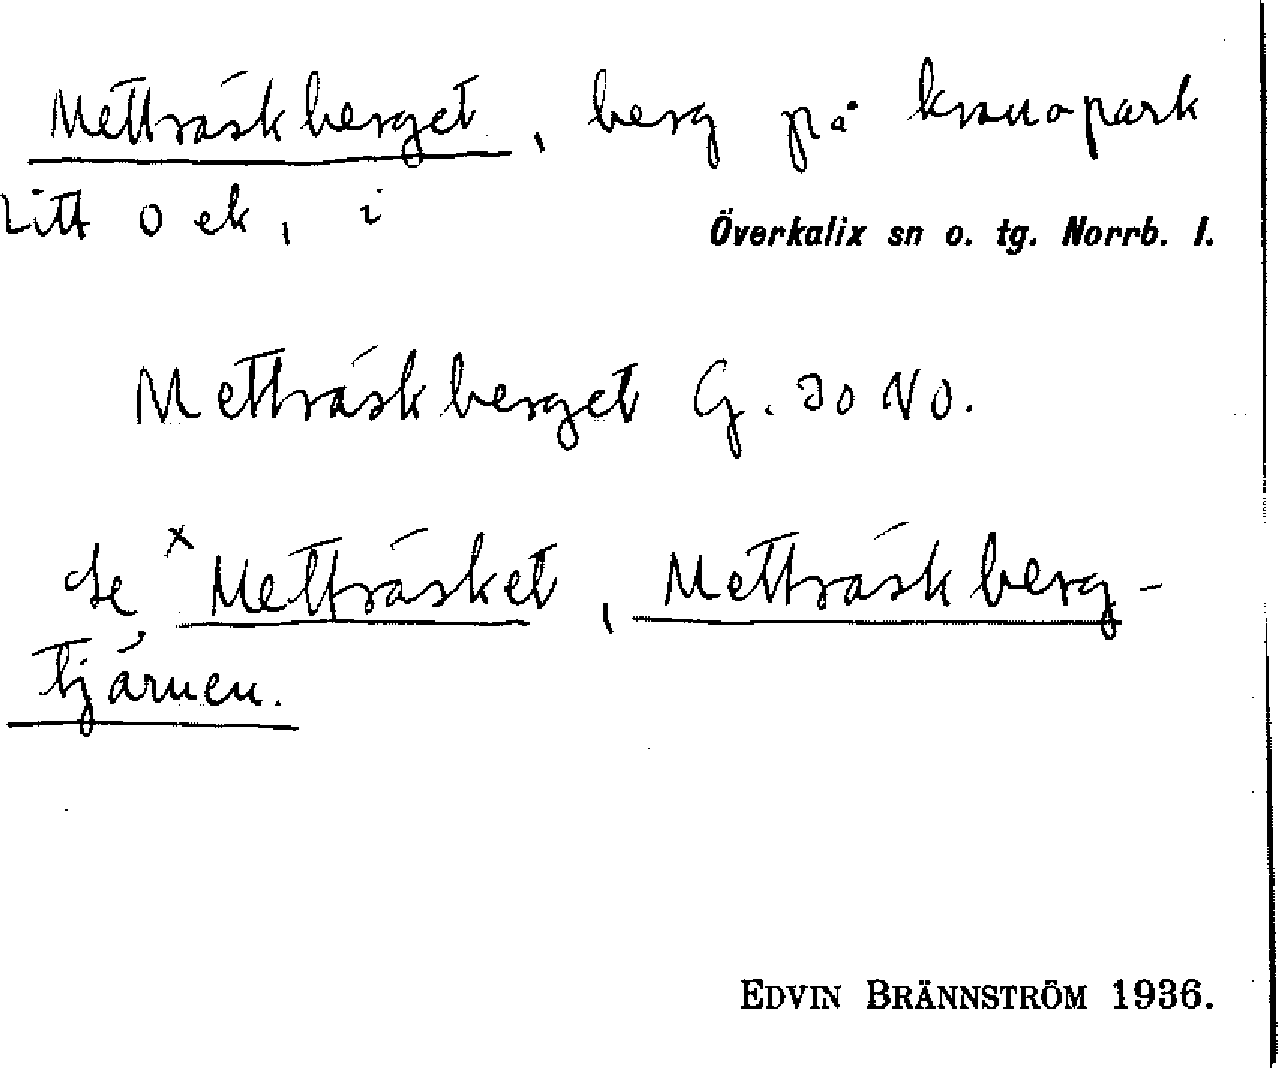 Metträskberget, berg på kronopark
Litt o ek, i Överkalix sn o. tg. Norrb. l.
Metträskberget G. 30 NO.
Se ˣMetträsket, Metträskberg-
tjärnen.
EDVIN BRÄNNSTRÖM 1936.